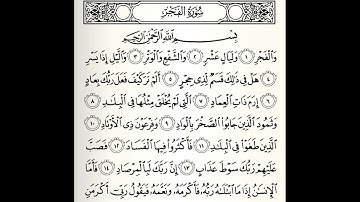 سُورَةُ الْفَجْرِ
بِسْمِ اللَّهِ الرَّحْمَٰنِ الرَّحِيمِ
وَالْفَجْرِ ١ وَلَيَالٍ عَشْرٍ ٢ وَالشَّفْعِ وَالْوَتْرِ ٣ وَالَّيْلِ إِذَا يَسْرِ
٤ هَلْ فِي ذَٰلِكَ قَسَمٌ لِّذِي حِجْرٍ ٥ أَلَمْ تَرَ كَيْفَ فَعَلَ رَبُّكَ بِعَادٍ
٦ إِرَمَ ذَاتِ الْعِمَادِ ٧ الَّتِي لَمْ يُخْلَقْ مِثْلُهَا فِي الْبِلَادِ ٨
وَثَمُودَ الَّذِينَ جَابُوا الصَّخْرَ بِالْوَادِ ٩ وَفِرْعَوْنَ ذِي الْأَوْتَادِ ١٠
الَّذِينَ طَغَوْا فِي الْبِلَادِ ١١ فَأَكْثَرُوا فِيهَا الْفَسَادَ ١٢ فَصَبَّ
عَلَيْهِمْ رَبُّكَ سَوْطَ عَذَابٍ ١٣ إِنَّ رَبَّكَ لَبِالْمِرْصَادِ ١٤ فَأَمَّا
الْإِنسَانُ إِذَا مَا ابْتَلَاهُ رَبُّهُ فَأَكْرَمَهُ وَنَعَّمَهُ فَيَقُولُ رَبِّي أَكْرَمَنِ